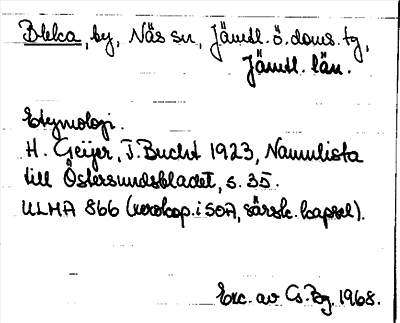 Bleka, by, Näs sn, Jämtl. ö. doms. tg,
Jämtl. län.
Etymologi.
H. Geijer, T. Bucht 1923, Namnlista
till Östersundsbladet, s. 35.
ULMA 866 (xerokop. i SOA, särsk. kapsel).
Exc. av Cs. Bg. 1968.